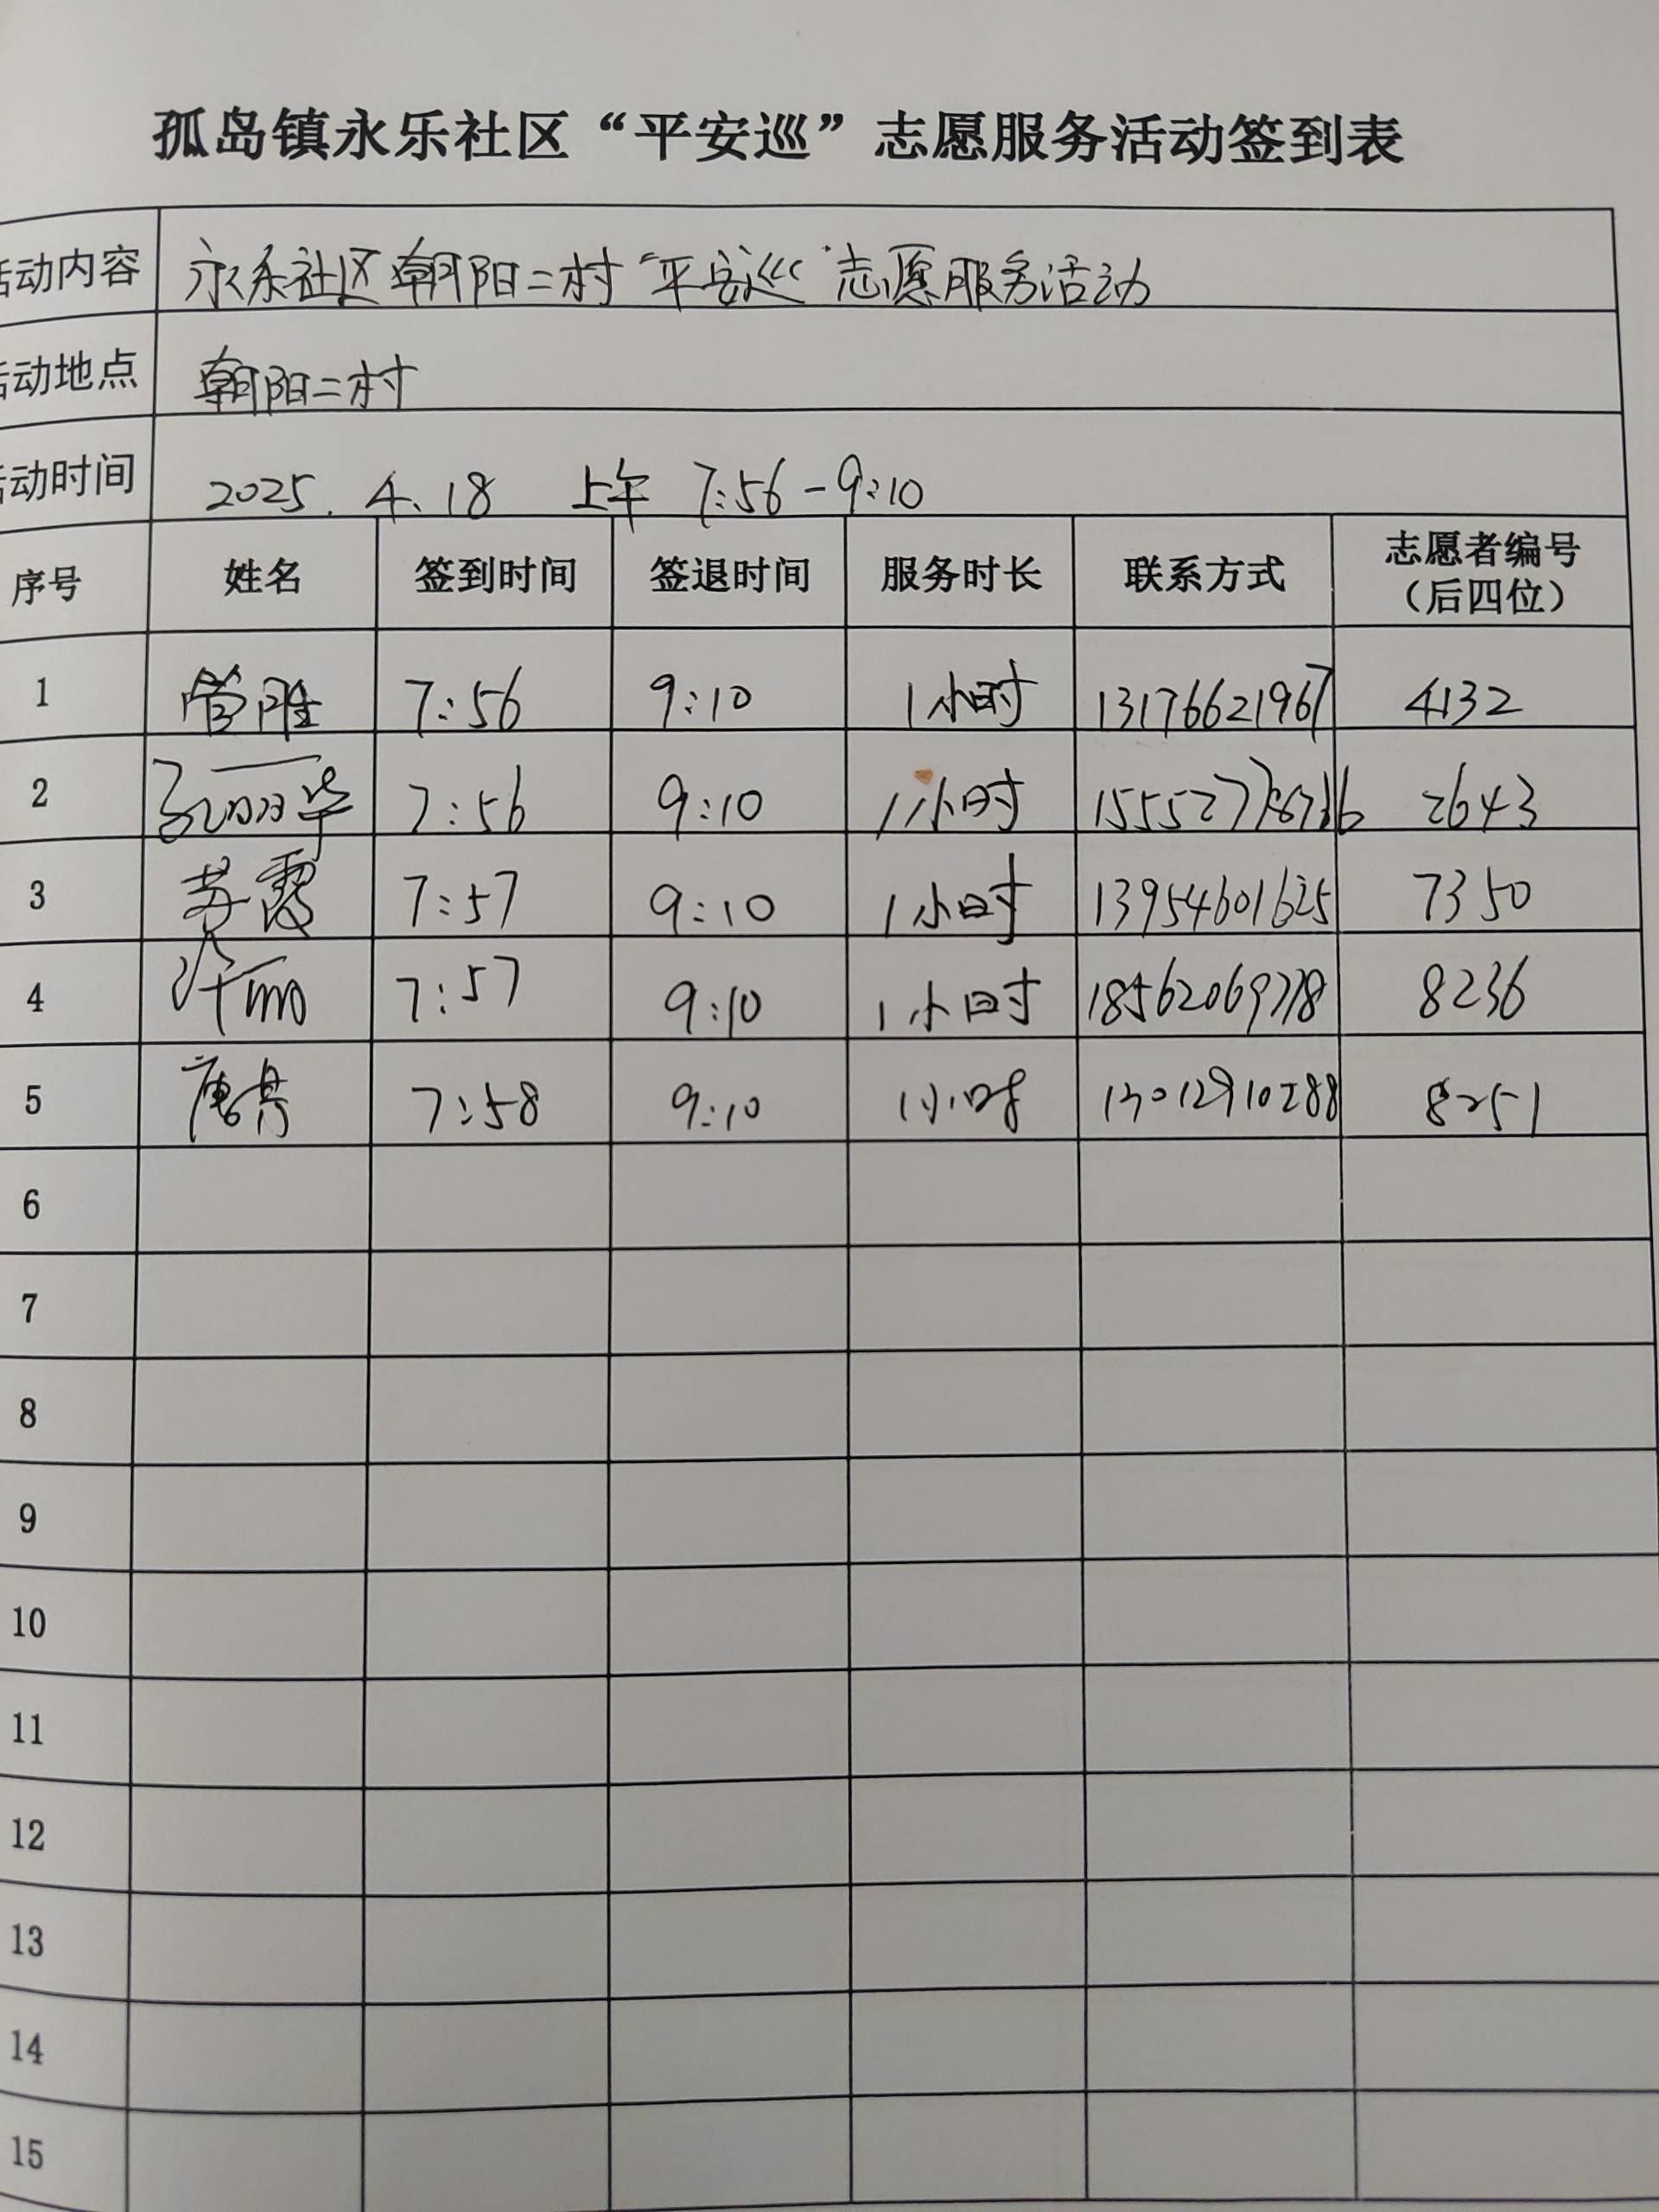 孤岛镇永乐社区“平安巡”志愿服务活动签到表
活动内容 永乐社区朝阳二村“平安巡”志愿服务活动
活动地点 朝阳二村
活动时间 2025.4.18 上午 7:56-9:10
序号 姓名 签到时间 签退时间 服务时长 联系方式 志愿者编号
(后四位)
1 管胜 7:56 9:10 1小时 13176621967 4132
2 丽华 7:56 9:10 1小时 2643
3 苏霞 7:57 9:10 1小时 13954601625 7350
4 许丽 7:57 9:10 1小时 18562069778 8236
5 唐丹 7:58 9:10 1小时 13012910288 8251
6
7
8
9
10
11
12
13
14
15